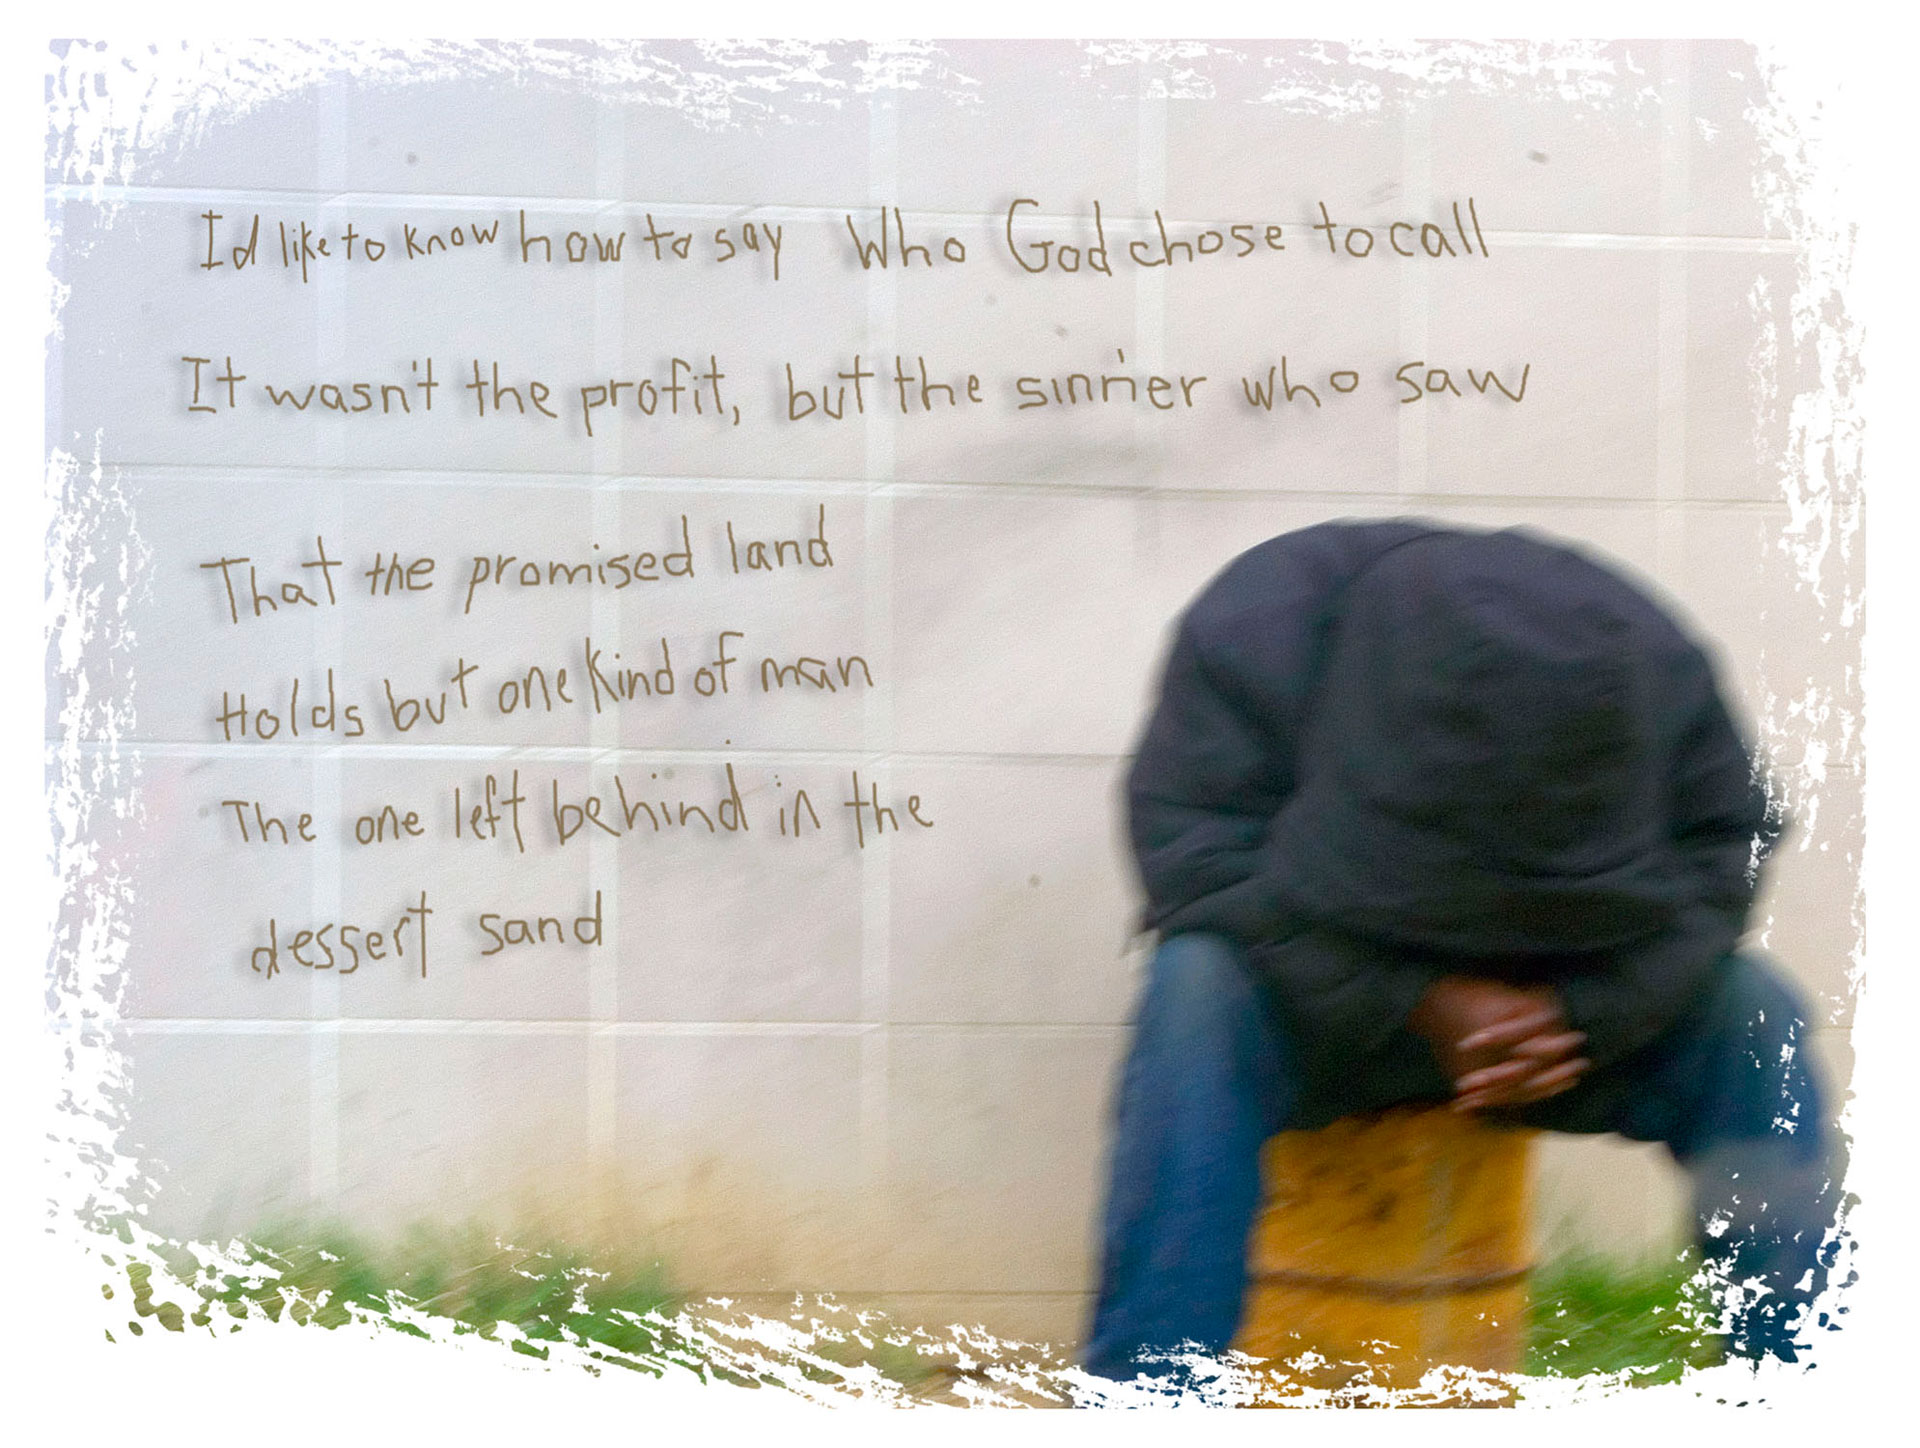 Id like to know how to say Who God chose to call
It wasn't the profit, but the sinner who saw
That the promised land
Holds but one kind of man
The one left behind in the
dessert sand